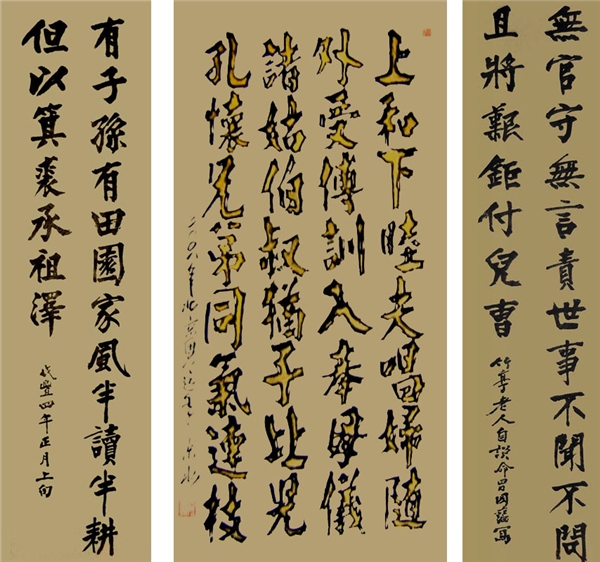 無官守無言責世事不聞不問
且將艱鉅付兒曹
竹亭老人自撰命曾國藩寫
上和下睦夫唱婦隨
外受傅訓入奉母儀
諸姑伯叔猶子比兒
孔懷兄弟同氣連枝
二〇〇八年北京
有子孫有田園家風半讀半耕
但以箕裘承祖澤
咸豐四年正月上旬